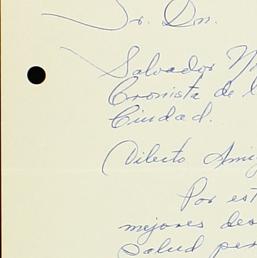 Sr. Dn.
Salvador
Cronista de
Ciudad.
Dilecto Amig
Por est
mejores des
Salud per